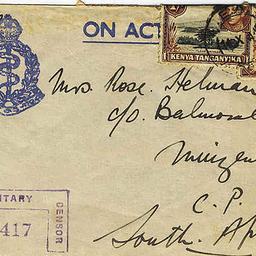 ON ACT
KENYA TANGANYIKA
Mrs. Rose. Helman
c/o. Balmoral
Muizen
C. P.
South. Af
ITARY
417
CENSOR